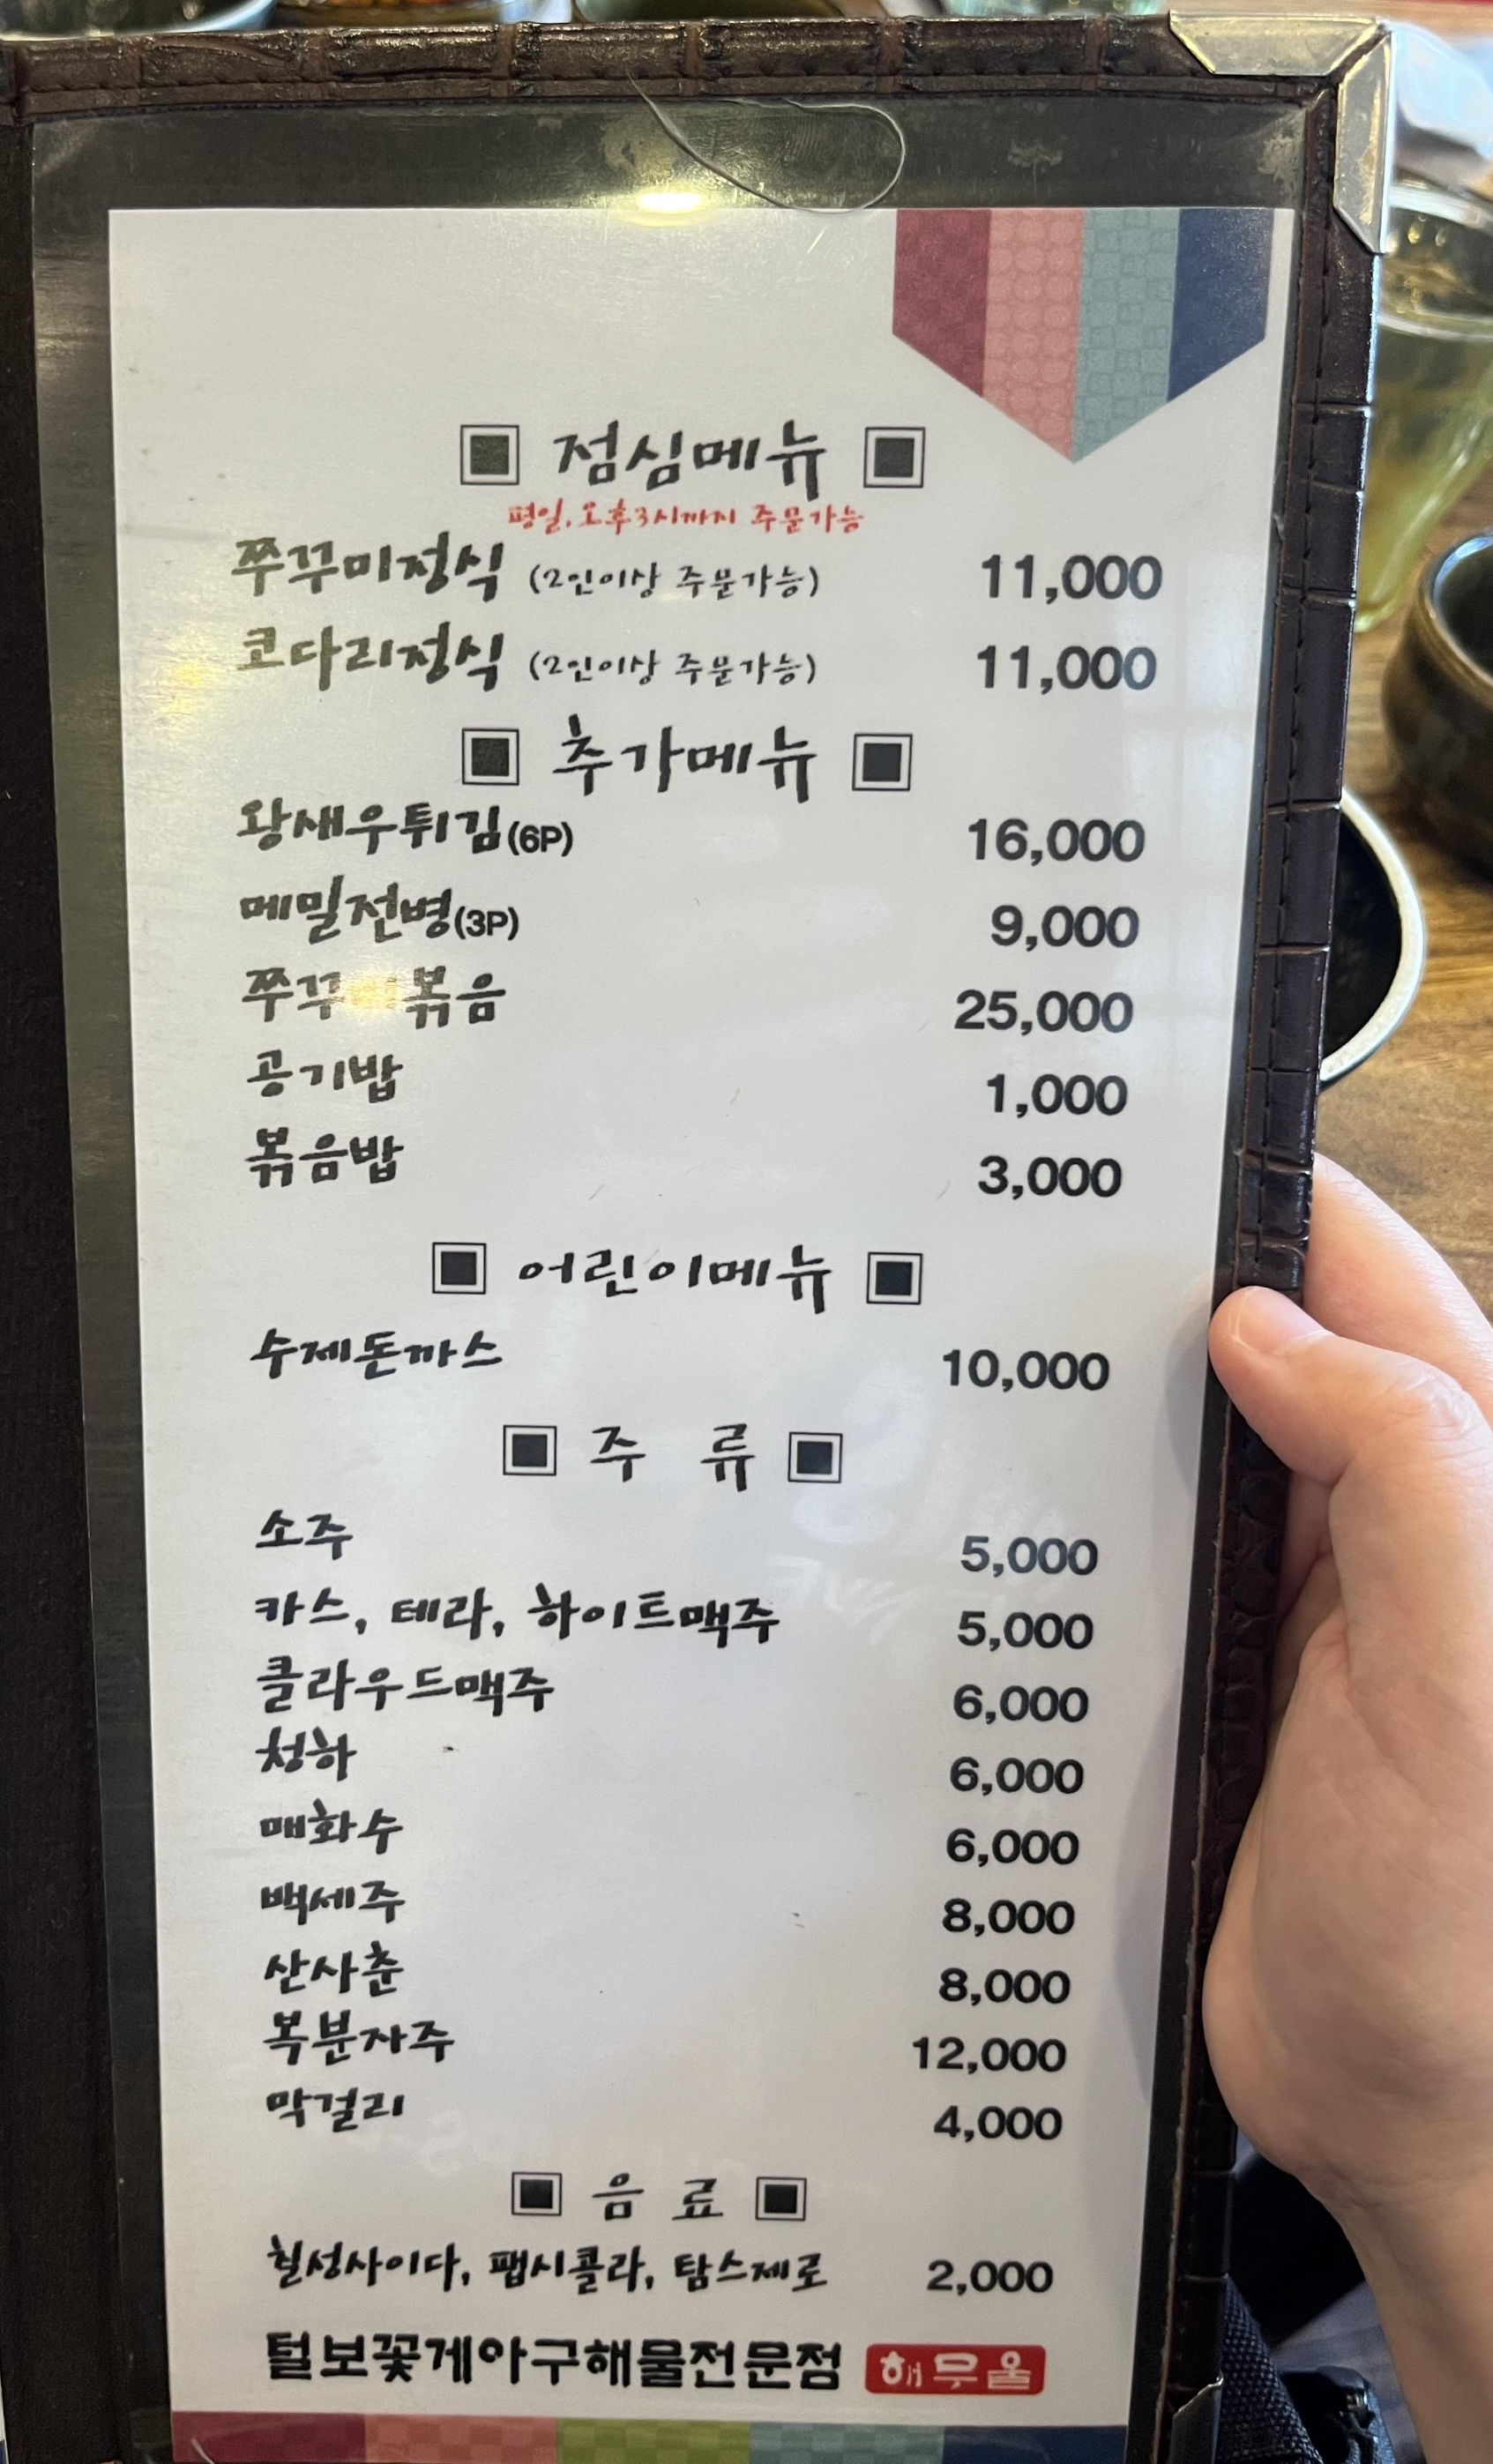 점심메뉴
평일, 오후3시까지 주문가능
쭈꾸미정식 (2인이상 주문가능) 11,000
코다리정식 (2인이상 주문가능) 11,000
추가메뉴
왕새우튀김(6P) 16,000
메밀전병(3P) 9,000
쭈꾸미볶음 25,000
공기밥 1,000
볶음밥 3,000
어린이메뉴
수제돈까스 10,000
주 류
소주 5,000
카스, 테라, 하이트맥주 5,000
클라우드맥주 6,000
청하 6,000
매화수 6,000
백세주 8,000
산사춘 8,000
복분자주 12,000
막걸리 4,000
음 료
칠성사이다, 팹시콜라, 탐스제로 2,000
털보꽃게아구해물전문점 해무울